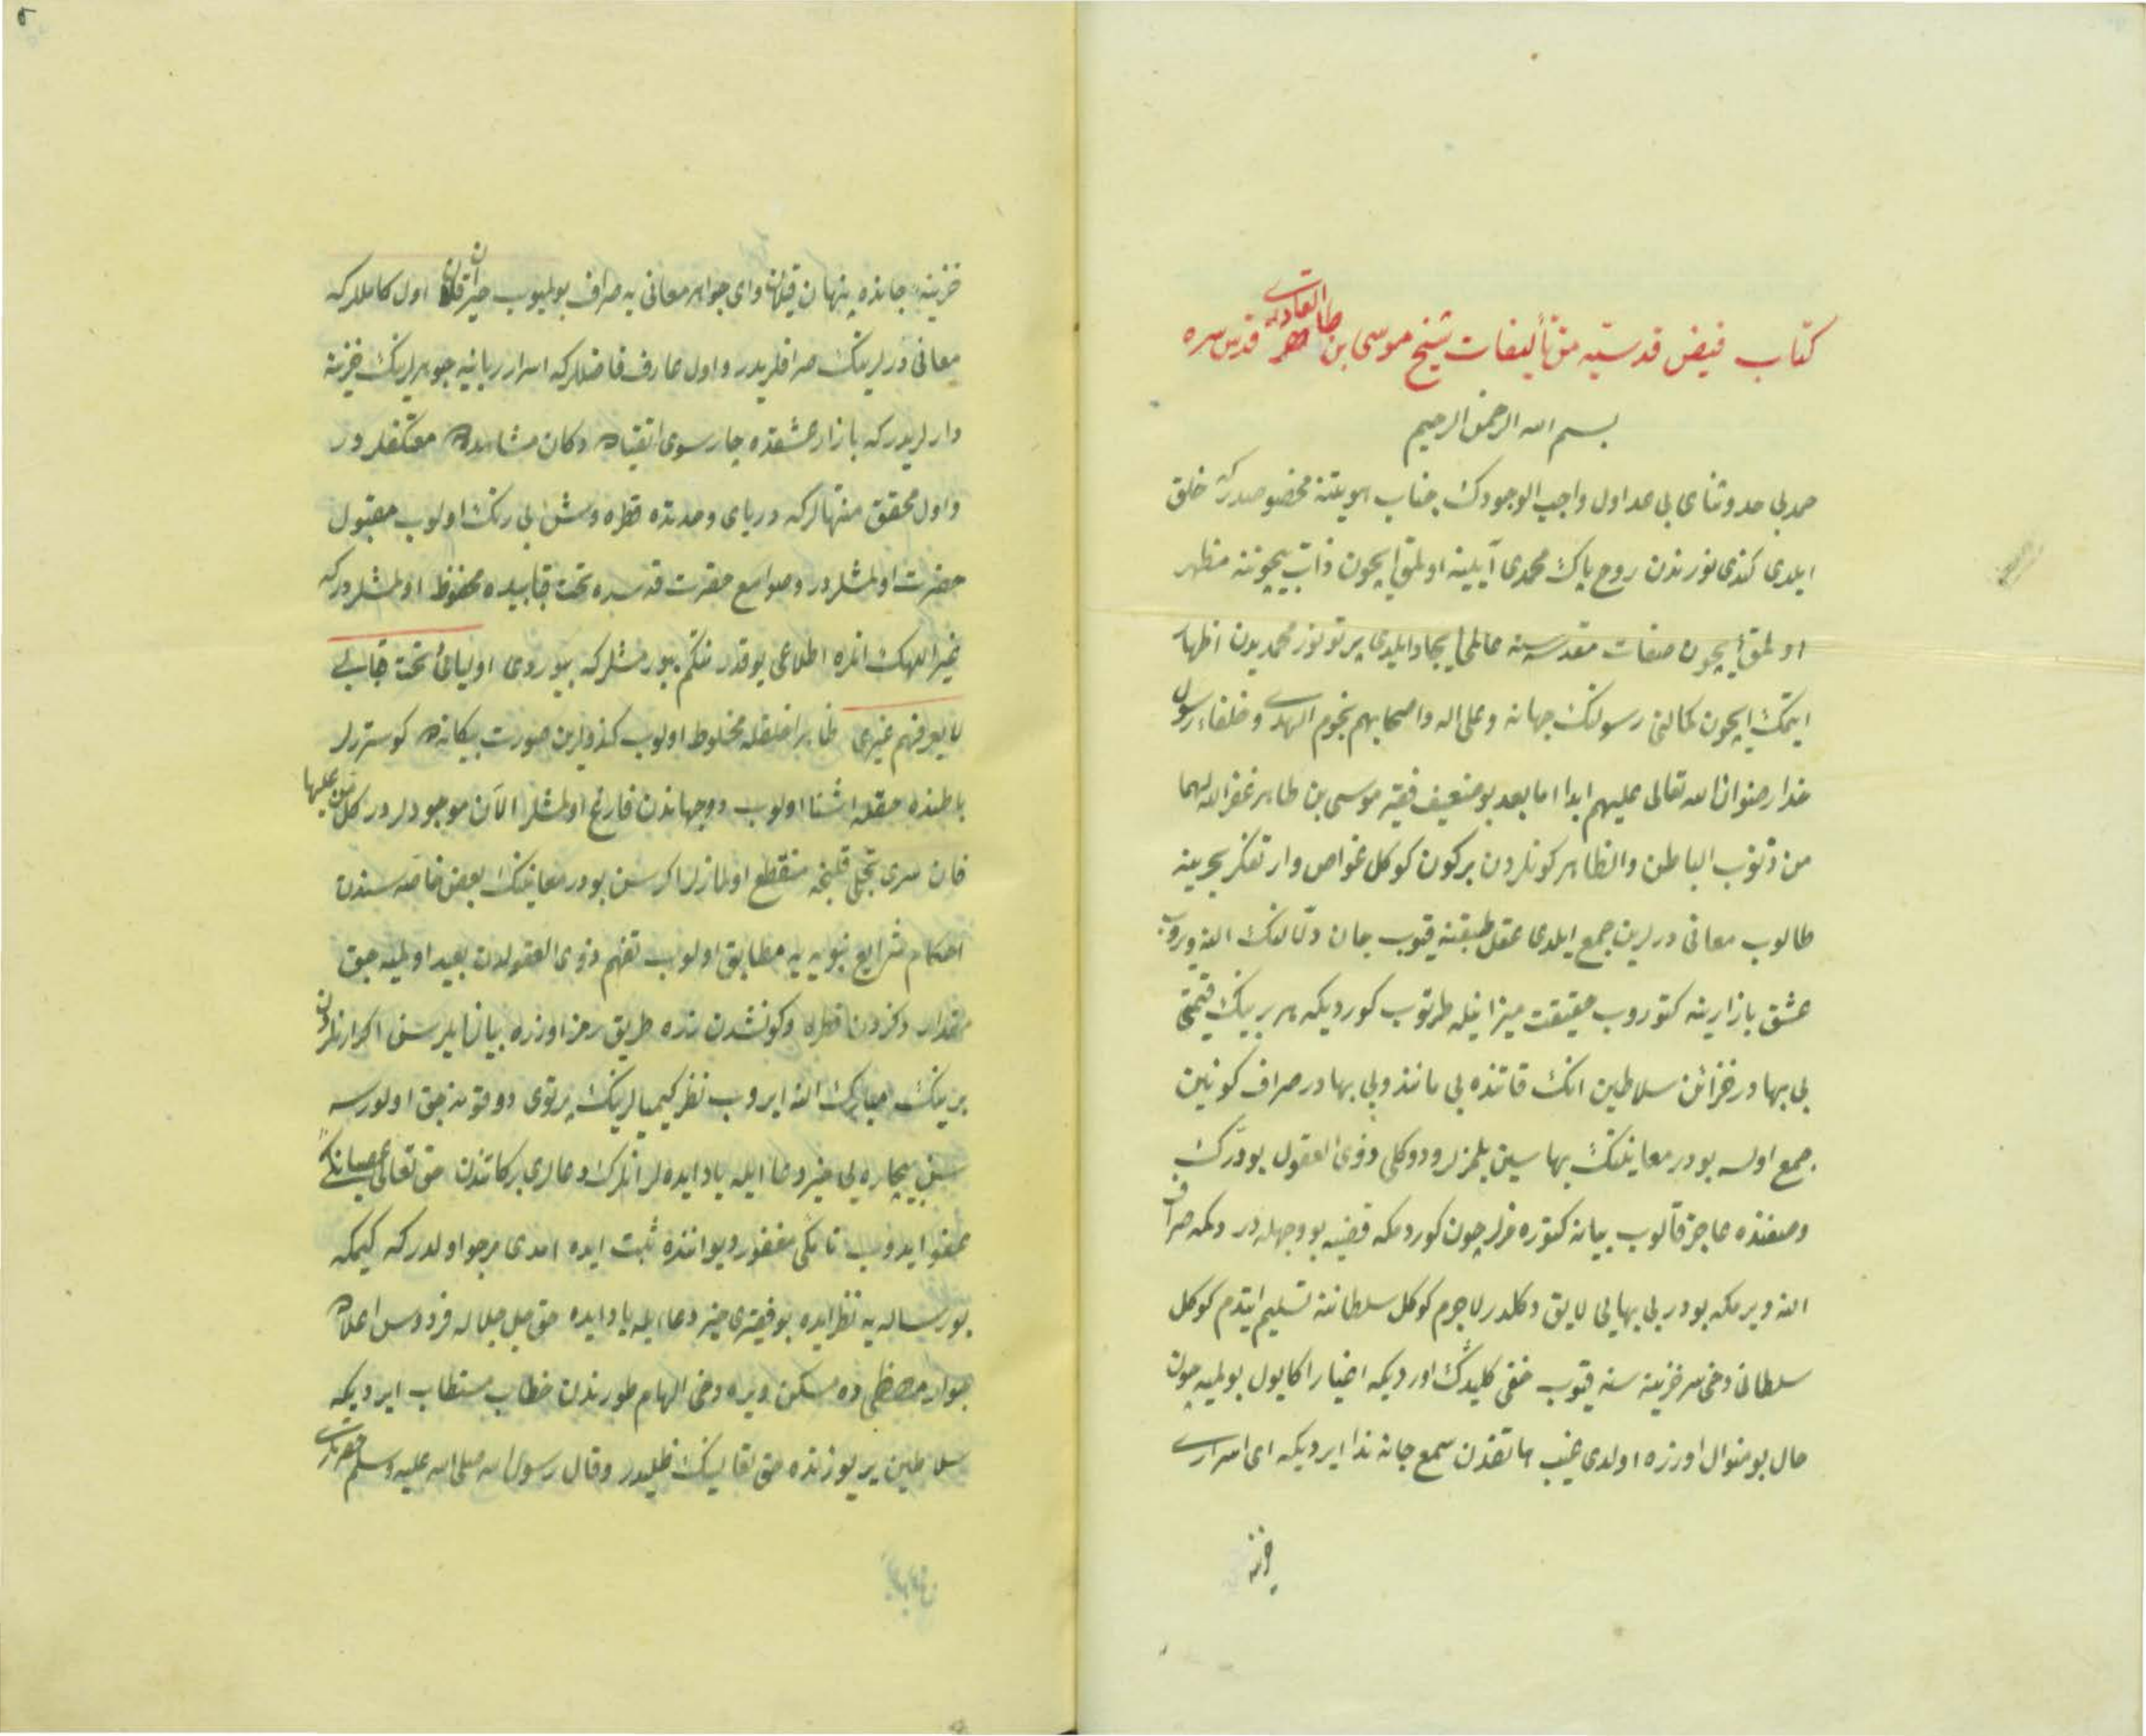 كتاب فيض قدسيّه من تأليفات شيخ موسى بن طاهر القادرى قدس سره
بسم الله الرحمن الرحيم
حمد بى حد و ثناى بى عد اول واجب الوجودك جناب هويتنه مخصوصدركه خلق
ايلدى كندى نورندن روح پاك محمدى آيينه اولمق ايچون ذات بيچوننه مظهر
اولمق ايچون صفات مقدسه سنه عالمى ايجاد ايلدى پرتو نور محمديدن اظهار
ايتمك ايچون كمالنى رسولنك جهانه وعلى اله واصحابهم نجوم الهدى وخلفاء رسول
خدا رضوان الله تعالى عليهم ابدا اما بعد بو ضعيف فقير موسى بن طاهر غفر الله لهما
من ذنوب الباطن والظاهر كونلردن بر كون كوكل غواص وار تفكر بحرينه
طالوب معانى درلرين جمع ايلدى عقل طبقنه قيوب جان دلّالنك النه ويروب
عشق بازارينه كتوروب حقيقت ميزانيله طرتوب كورديكه هر برينك قيمتى
بى بهادر خزائن سلاطين انك قاتنده بى مانند و بى بهادر صراف كونين
جمع اولسه بو در معاينك بهاسين بلمزلر ودوكلى ذوى العقول بو درّك
وصفنده عاجز قالوب بيانه كتوره مزلر چون كوردمكه قضيه بو وجهله در دلمه صراف
النه ويرمكه بو در بى بهايى لايق دكلدر لاجرم كوكل سلطاننه تسليم ايتدم كوكل
سلطانى دخى سر خزينه سنه قيوب خفى كليدك اورديكه اخيار اكا يول بولميه چون
حال بو منوال اوزره اولدى غيب هاتفندن سمع جانه ندا ايرديكه اى اسرارى
خزينه
خزينه جانده پنهان قيلان واى جواهر معانى يه صراف بولميوب حيران قلان اول كامللركه
معانى درلرينك صرافلريدر واول عارف فاضللركه اسرار ربانيه جوهرلرينك خزينه
دارلريدركه بازار عشقده چارسوى دكان مشاهده ده معتكفلردر
واول محقق منتهالركه درياى وحدتده قطره وش بى رنك اولوب مقبول
حضرت اولمشلردر وصوامع حضرت قدسده تحت قبابيده محفوظ اولمشلردركه
غير اللهك انلره اطلاعى يوقدر نتكم بيورمشلركه بيوردى اوليائى تحت قبابى
لا يعرفهم غيرى ظاهرا خلقله مخلوط اولوب كندولرين صورت بيكانه ده كوستررلر
باطنده حقله اشنا اولوب دو جهاندن فارغ اولمشلر الآن موجودلردر كل من عليها
فان سرى تجلى قلنجه منقطع اولمازلر اكر سن بو در معانينك بعض خاصه سندن
احكام شرايع نبويه يه مطابق اولوب تفهم ذوى العقولدن بعيد اولميه جق
مقدار دكزدن قطره وكونشدن ذره طريق رمز اوزره بيان ايلرسن اكر ارنلردن
برينك مبارك النه ايروب نظر كيميالرينك پرتوى دوقونه جق اولورسه
سن بيچاره يى خير دعا ايله ياد ايده لر انلرك دعالرى بركاتندن حق تعالى عصيانكى
عفو ايدوب نا‌مكى مغفور ديواننده ثبت ايده امدى مرجو اولدركه كيمكه
بو رساله يه نظر ايده بو فقيرى خير دعا ايله ياد ايده حق جل جلاله فردوس اعلاده
جوار مصطفى ده مسكن ويره دخى الهام طورندن خطاب مستطاب ايرديكه
سلاطين ير يوزنده حق تعالينك ظليدر وقال رسول الله صلى الله عليه وسلم حضرتلرى